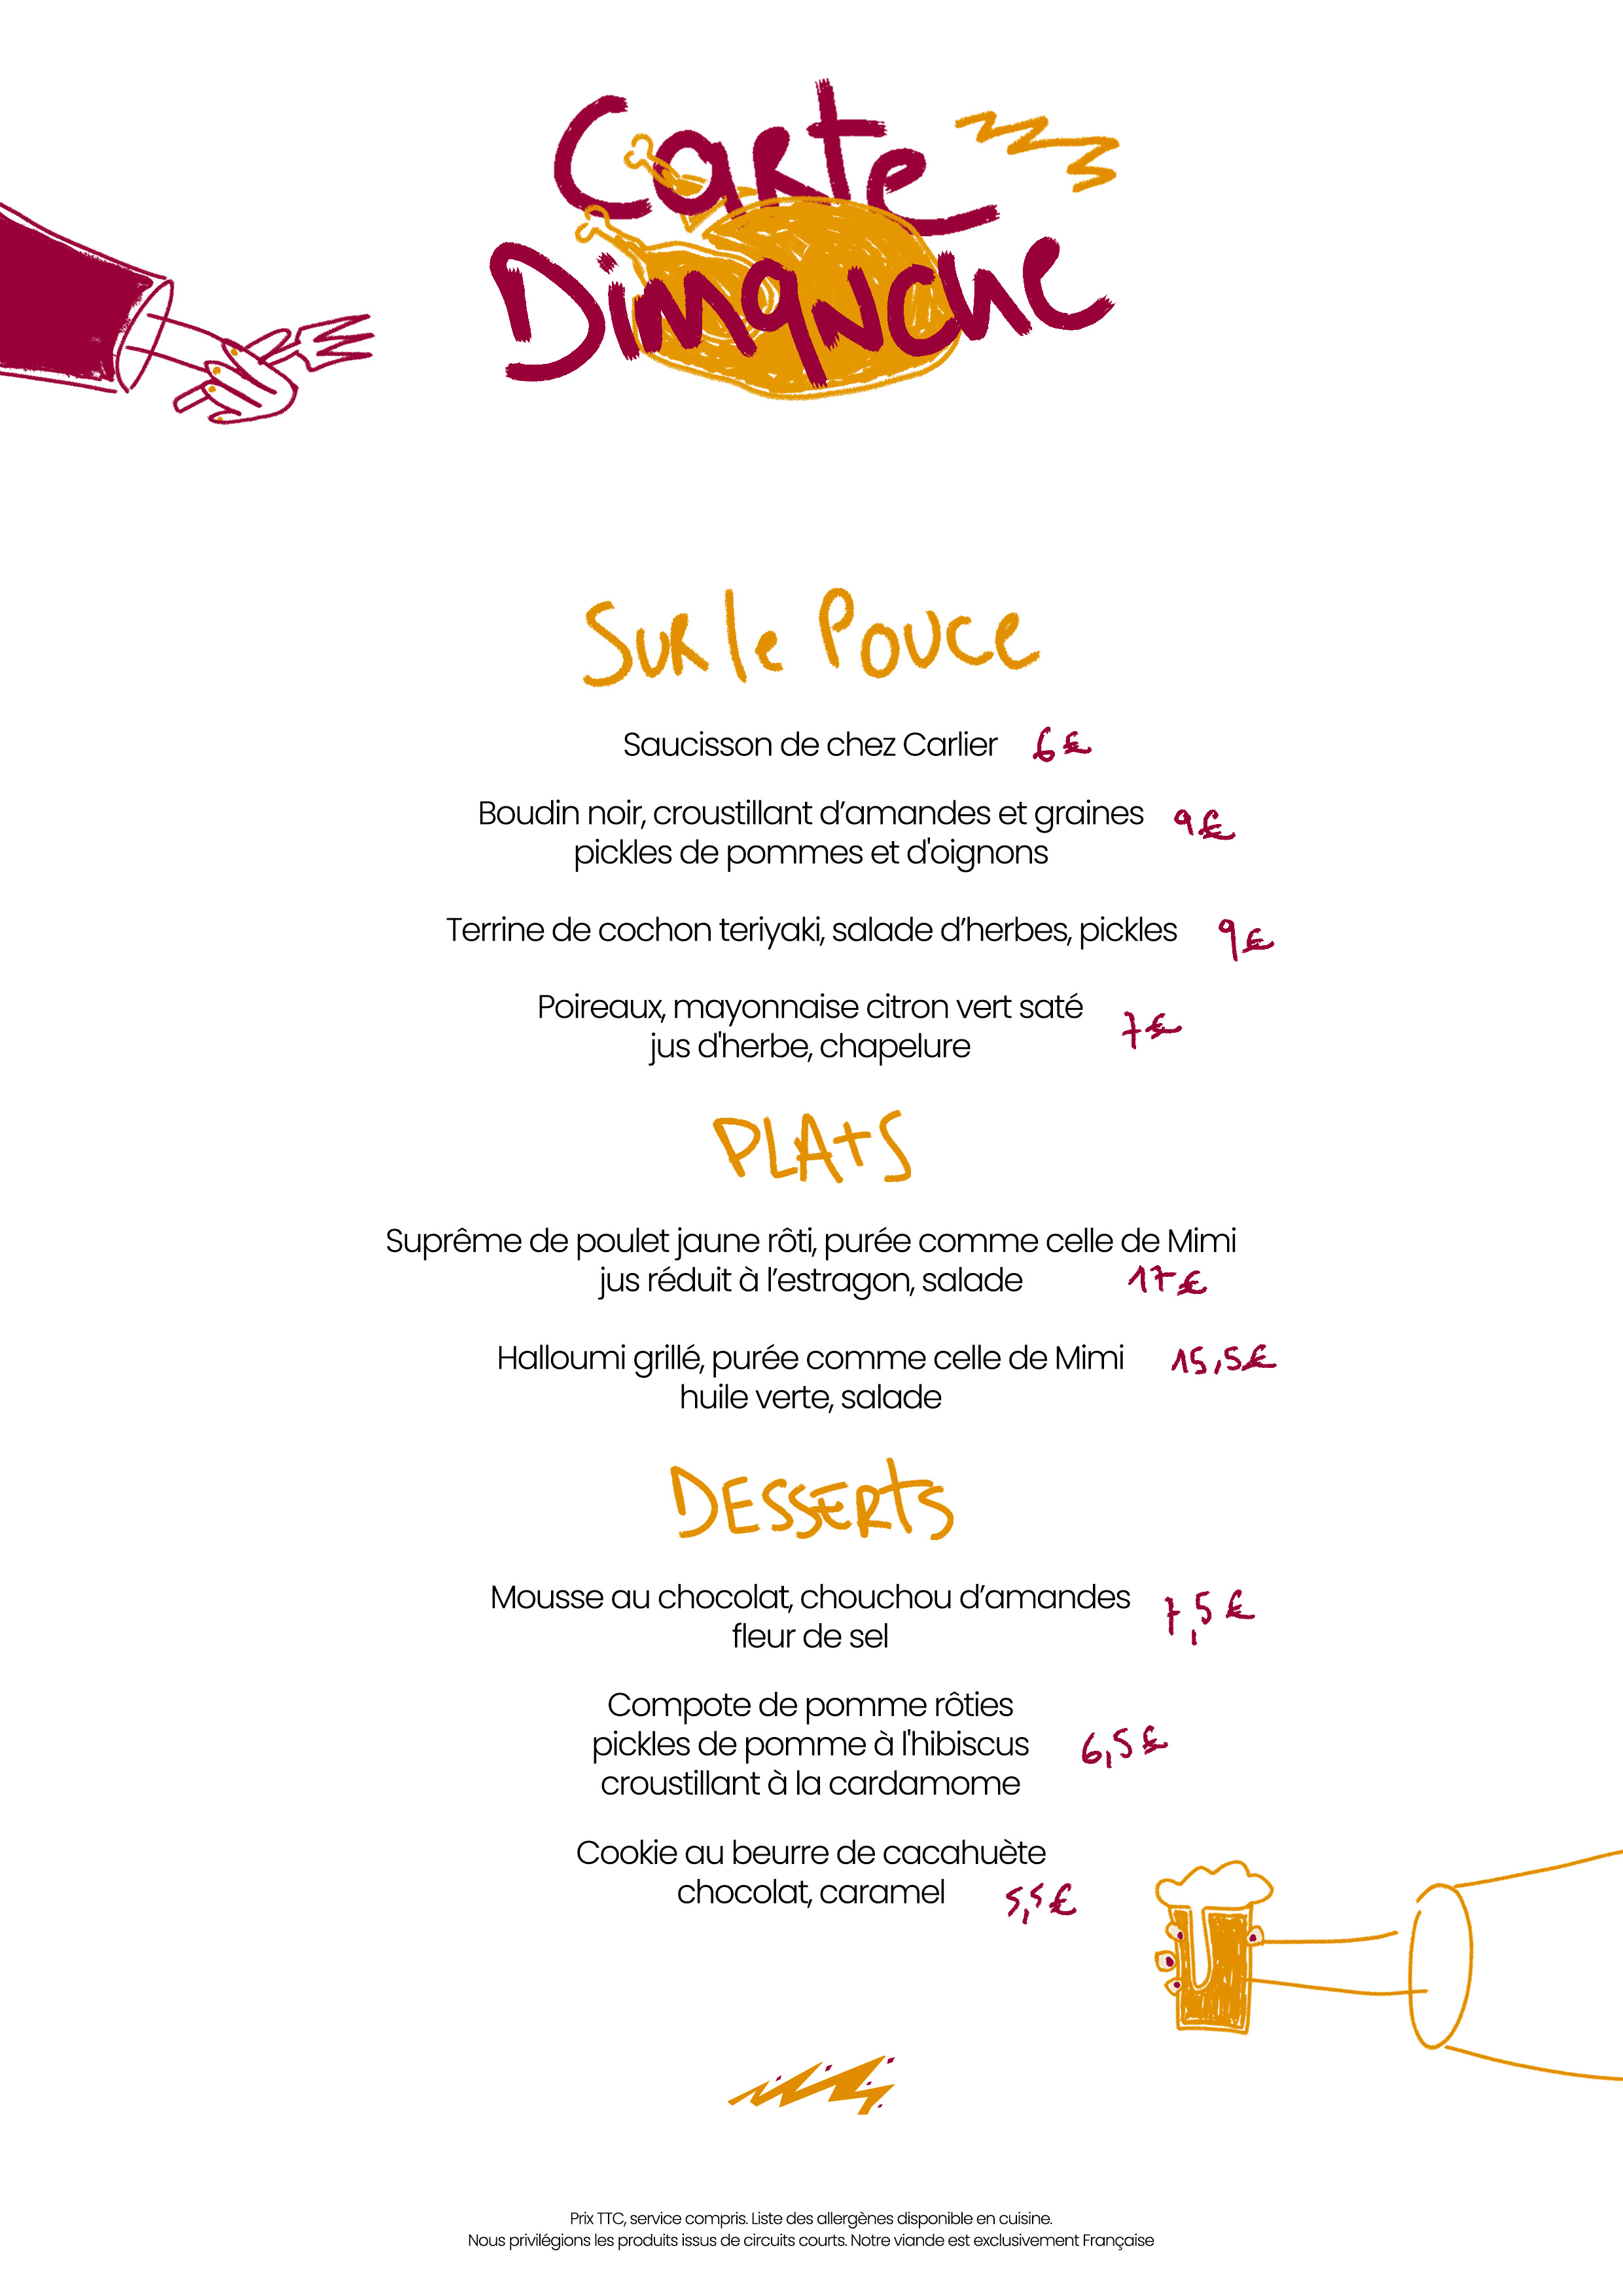 Carte
Dimanche
Sur le Pouce
Saucisson de chez Carlier 6€
Boudin noir, croustillant d’amandes et graines 9€
pickles de pommes et d'oignons
Terrine de cochon teriyaki, salade d’herbes, pickles 9€
Poireaux, mayonnaise citron vert saté 7€
jus d'herbe, chapelure
PLAtS
Suprême de poulet jaune rôti, purée comme celle de Mimi
jus réduit à l’estragon, salade 17€
Halloumi grillé, purée comme celle de Mimi 15,5€
huile verte, salade
DESSERtS
Mousse au chocolat, chouchou d’amandes 7,5€
fleur de sel
Compote de pomme rôties
pickles de pomme à l'hibiscus 6,5€
croustillant à la cardamome
Cookie au beurre de cacahuète
chocolat, caramel 5,5€
Prix TTC, service compris. Liste des allergènes disponible en cuisine.
Nous privilégions les produits issus de circuits courts. Notre viande est exclusivement Française